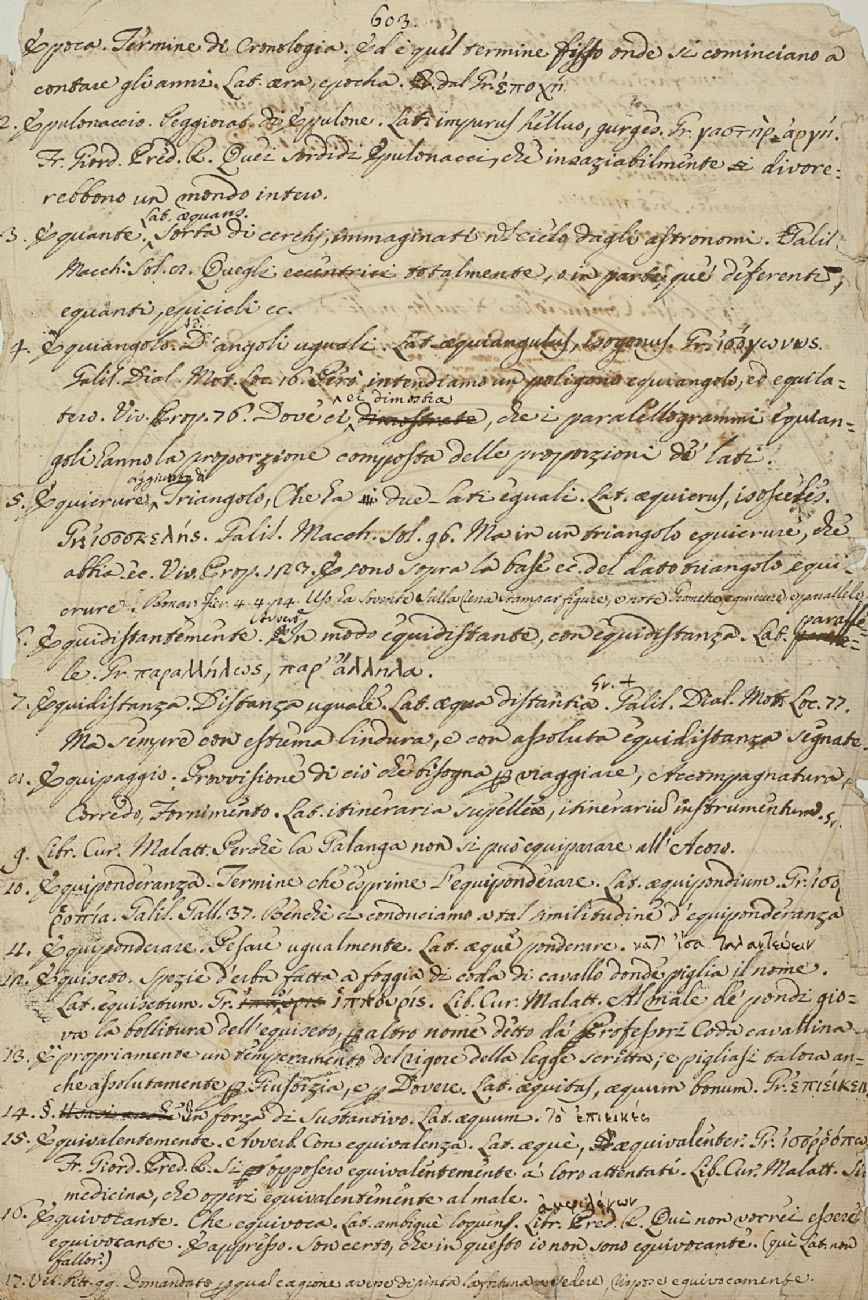 603.
Epoca. Termine di Cronologia. Ed è quel termine fisso onde si cominciano a
contare gli anni. Lat. æra, epocha. dal Gr. ἐποχή.
2. Epulonaccio. Peggiorat. di Epulone. Lat. impurus helluo, gurges. Gr. γαστὴρ ἀργή.
Fr. Giord. Pred. R. Quei sordidi Epulonacci, che insaziabilmente si divore-
rebbono un mondo intero.
Lat. æquans.
3. Equante. Sorta di cerchj, immaginati nel cielo dagli astronomi. Galil.
Macch. Sol. Quegli eccentrici totalmente, o in parte que' deferenti,
equanti, epicicli ec.
4. Equiangolo. D'angoli uguali. Lat. æquiangulus, isogonus. Gr. ἰσόγωνος.
Galil. Dial. Mot. Loc. 16. Però intendiamo un poligono equiangolo, ed equila-
ci dimostra
tero. Viv. Prop. 76. Dove ci dimostrate, che i parallelogrammi equian-
goli hanno la proporzione composta delle proporzioni de' lati.
aggiunto di
5. Equicrure. Triangolo, Che ha due lati eguali. Lat. æquicrus, isosceles.
Gr. ἰσοσκελής. Galil. Macch. Sol. 96. Ma in un triangolo equicrure, che
abbia ec. Viv. Prop. 123. E sono sopra la base ec. del dato triangolo equi-
crure. Buonar. Fier. 4. 4. 14. sulla rena stampar figure, e note Geometriche equicrure, e parallele
Avverb.
6. Equidistantemente. In modo equidistante, con equidistanza. Lat. paralle-
le. Gr. παραλλήλως, παρ' ἄλληλα.
7. Equidistanza. Distanza uguale. Lat. æqua distantia. Gr. + Galil. Dial. Mott. Loc. 77.
Ma sempre con estrema lindura, e con assoluta equidistanza segnate.
8. Equipaggio. Provvisione di ciò che bisogna p viaggiare, Accompagnatura,
Corredo, Fornimento. Lat. itineraria supellex, itinerariū instrumentum. Gr.
9. Libr. Cur. Malatt. Perchè la Galanga non si può equiparare all'Acoro.
10. Equiponderanza. Termine che esprime l'equiponderare. Lat. æquipondium. Gr. ἰσο
ῤῥοπία. Galil. Gall. 37. Benchè ci conduciamo a tal similitudine d'equiponderanza
11. Equiponderare. Pesare ugualmente. Lat. æquè ponderare. κατ' ἴσα ταλαντεύειν
12. Equiseto. Spezie d'erba fatta a foggia di coda di cavallo donde piglia il nome.
Lat. equisetum. Gr. ἵππουρις. Lib. Cur. Malatt. Al male de' pondi gio-
va la bollitura dell'equiseto, p altro nome detto da' Professori Coda cavallina.
13. E propriamente un temperamento del rigore della legge scritta; e pigliasi talora an-
che assolutamente p Giustizia, e p Dovere. Lat. æquitas, æquum bonum. Gr. ἐπιείκεια
14. §. In forza di Sustantivo. Lat. æquum. τὸ ἐπιεικές
15. Equivalentemente. Avverb. Con equivalenza. Lat. æquè, æquivalenter. Gr. ἰσοῤῥόπως
Fr. Giord. Pred. R. Si opposero equivalentemente a' loro attentati. Lib. Cur. Malatt. Si
medicina, che operi equivalentemente al male.
16. Equivocante. Che equivoca. Lat. ambiguè loquens. Libr. Pred. R. Qui non vorrei essere
equivocante. E appresso. Son certo, che in questo io non sono equivocante. (qui Lat. non
fallor:)
17. Vit. Pitt. 99. Domandato p qual cagione avesse dipinta la fortuna a sedere, rispose equivocamente.